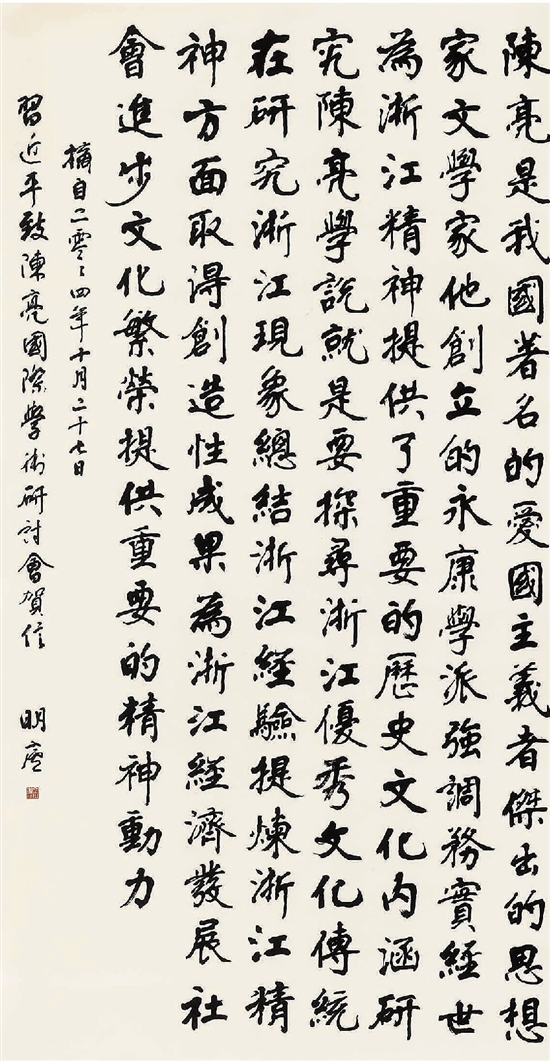 陳亮是我國著名的愛國主義者傑出的思想
家文學家他創立的永康學派強調務實經世
為浙江精神提供了重要的歷史文化內涵研
究陳亮學說就是要探尋浙江優秀文化傳統
在研究浙江現象總結浙江經驗提煉浙江精
神方面取得創造性成果為浙江經濟發展社
會進步文化繁榮提供重要的精神動力
摘自二零零四年十月二十七日
習近平致陳亮國際學術研討會賀信
明